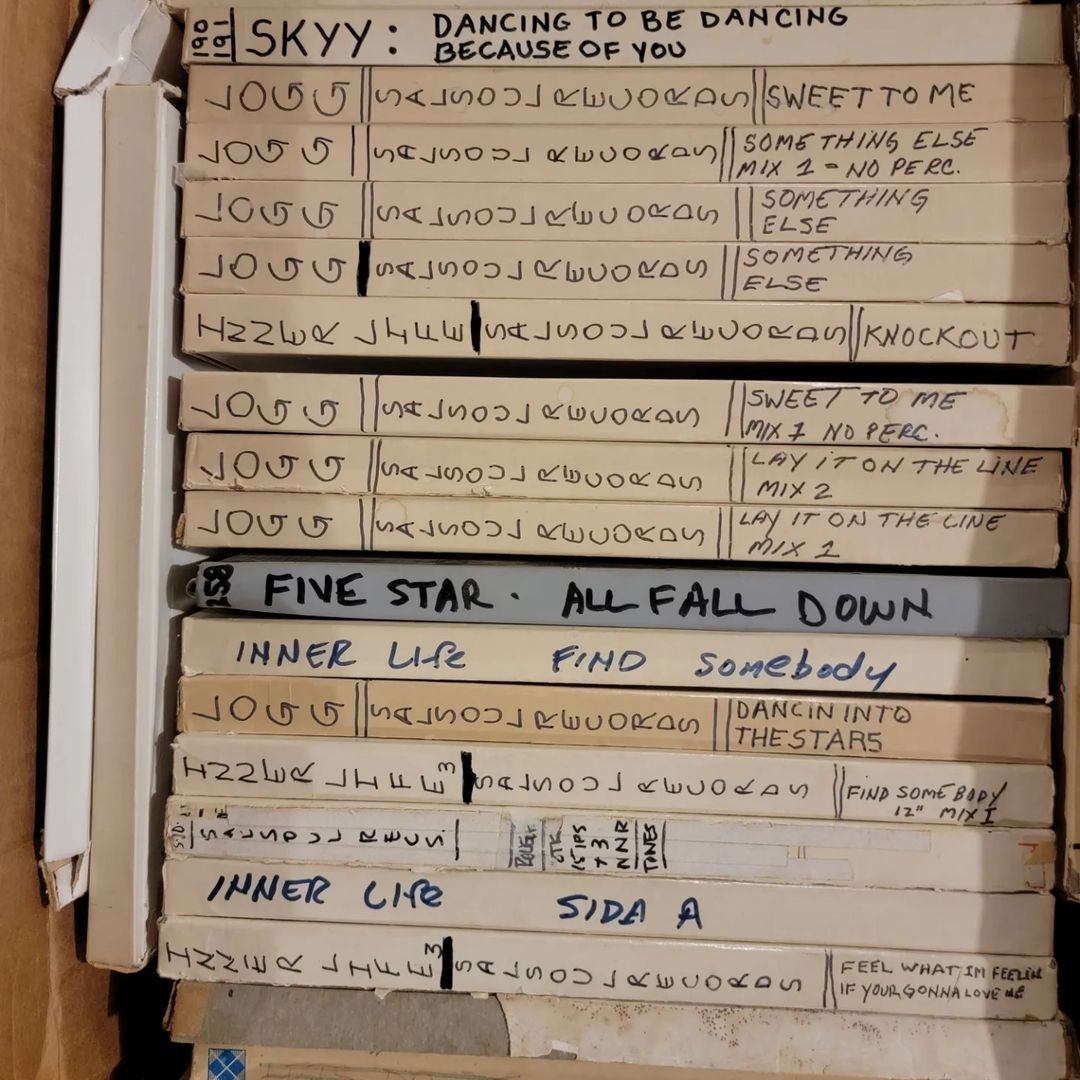 190
191
SKYY: DANCING TO BE DANCING
BECAUSE OF YOU
LOGG SALSOUL RECORDS SWEET TO ME
LOGG SALSOUL RECORDS SOMETHING ELSE
MIX 1 - NO PERC.
LOGG SALSOUL RECORDS SOMETHING
ELSE
LOGG SALSOUL RECORDS SOMETHING
ELSE
INNER LIFE SALSOUL RECORDS KNOCKOUT
LOGG SALSOUL RECORDS SWEET TO ME
MIX 1 NO PERC.
LOGG SALSOUL RECORDS LAY IT ON THE LINE
MIX 2
LOGG SALSOUL RECORDS LAY IT ON THE LINE
MIX 1
158 FIVE STAR. ALL FALL DOWN
INNER LIFE FIND SOMEBODY
LOGG SALSOUL RECORDS DANCIN INTO
THE STARS
INNER LIFE 3 SALSOUL RECORDS FIND SOMEBODY
12" MIX I
SALSOUL RECS.
15 IPS
+3
NNR
TONES
INNER LIFE SIDA A
INNER LIFE 3 SALSOUL RECORDS FEEL WHAT IM FEELIN
IF YOUR GONNA LOVE ME